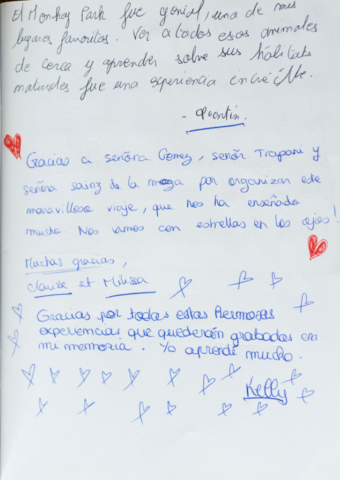 El Monkey Park fue genial, una de mis
lugares favoritos. Ver a todos esos animales
de cerca y aprender sobre sus habitats
naturales fue una experiencia
- Quentin.
Gracias a señora Gomez, señor Trapani y
señora sainz de la maza por organizar este
maravilloso viaje, que nos ha enseñado
mucho. Nos vamos con estrellas en los ojos!
Muchas gracias,
et
Gracias por todas estas hermosas
experiencias que quederán grabadas en
mi memoria. Yo aprendé mucho.
Kelly